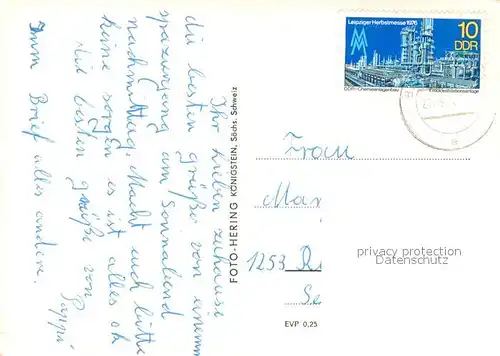 Ihr Lieben zuhause
die besten grüße von einem
spaziergang am Sonnabend
nachmittag. Macht euch bitte
keine sorgen es ist alles ok
die besten grüße von
Pappi
Im Brief alles andere.
FOTO-HERING KÖNIGSTEIN, Sächs. Schweiz
Leipziger Herbstmesse 1976
10
DDR
DDR-Chemieanlagenbau
Frau
Mar
1253
privacy protection
Datenschutz
EVP 0,25